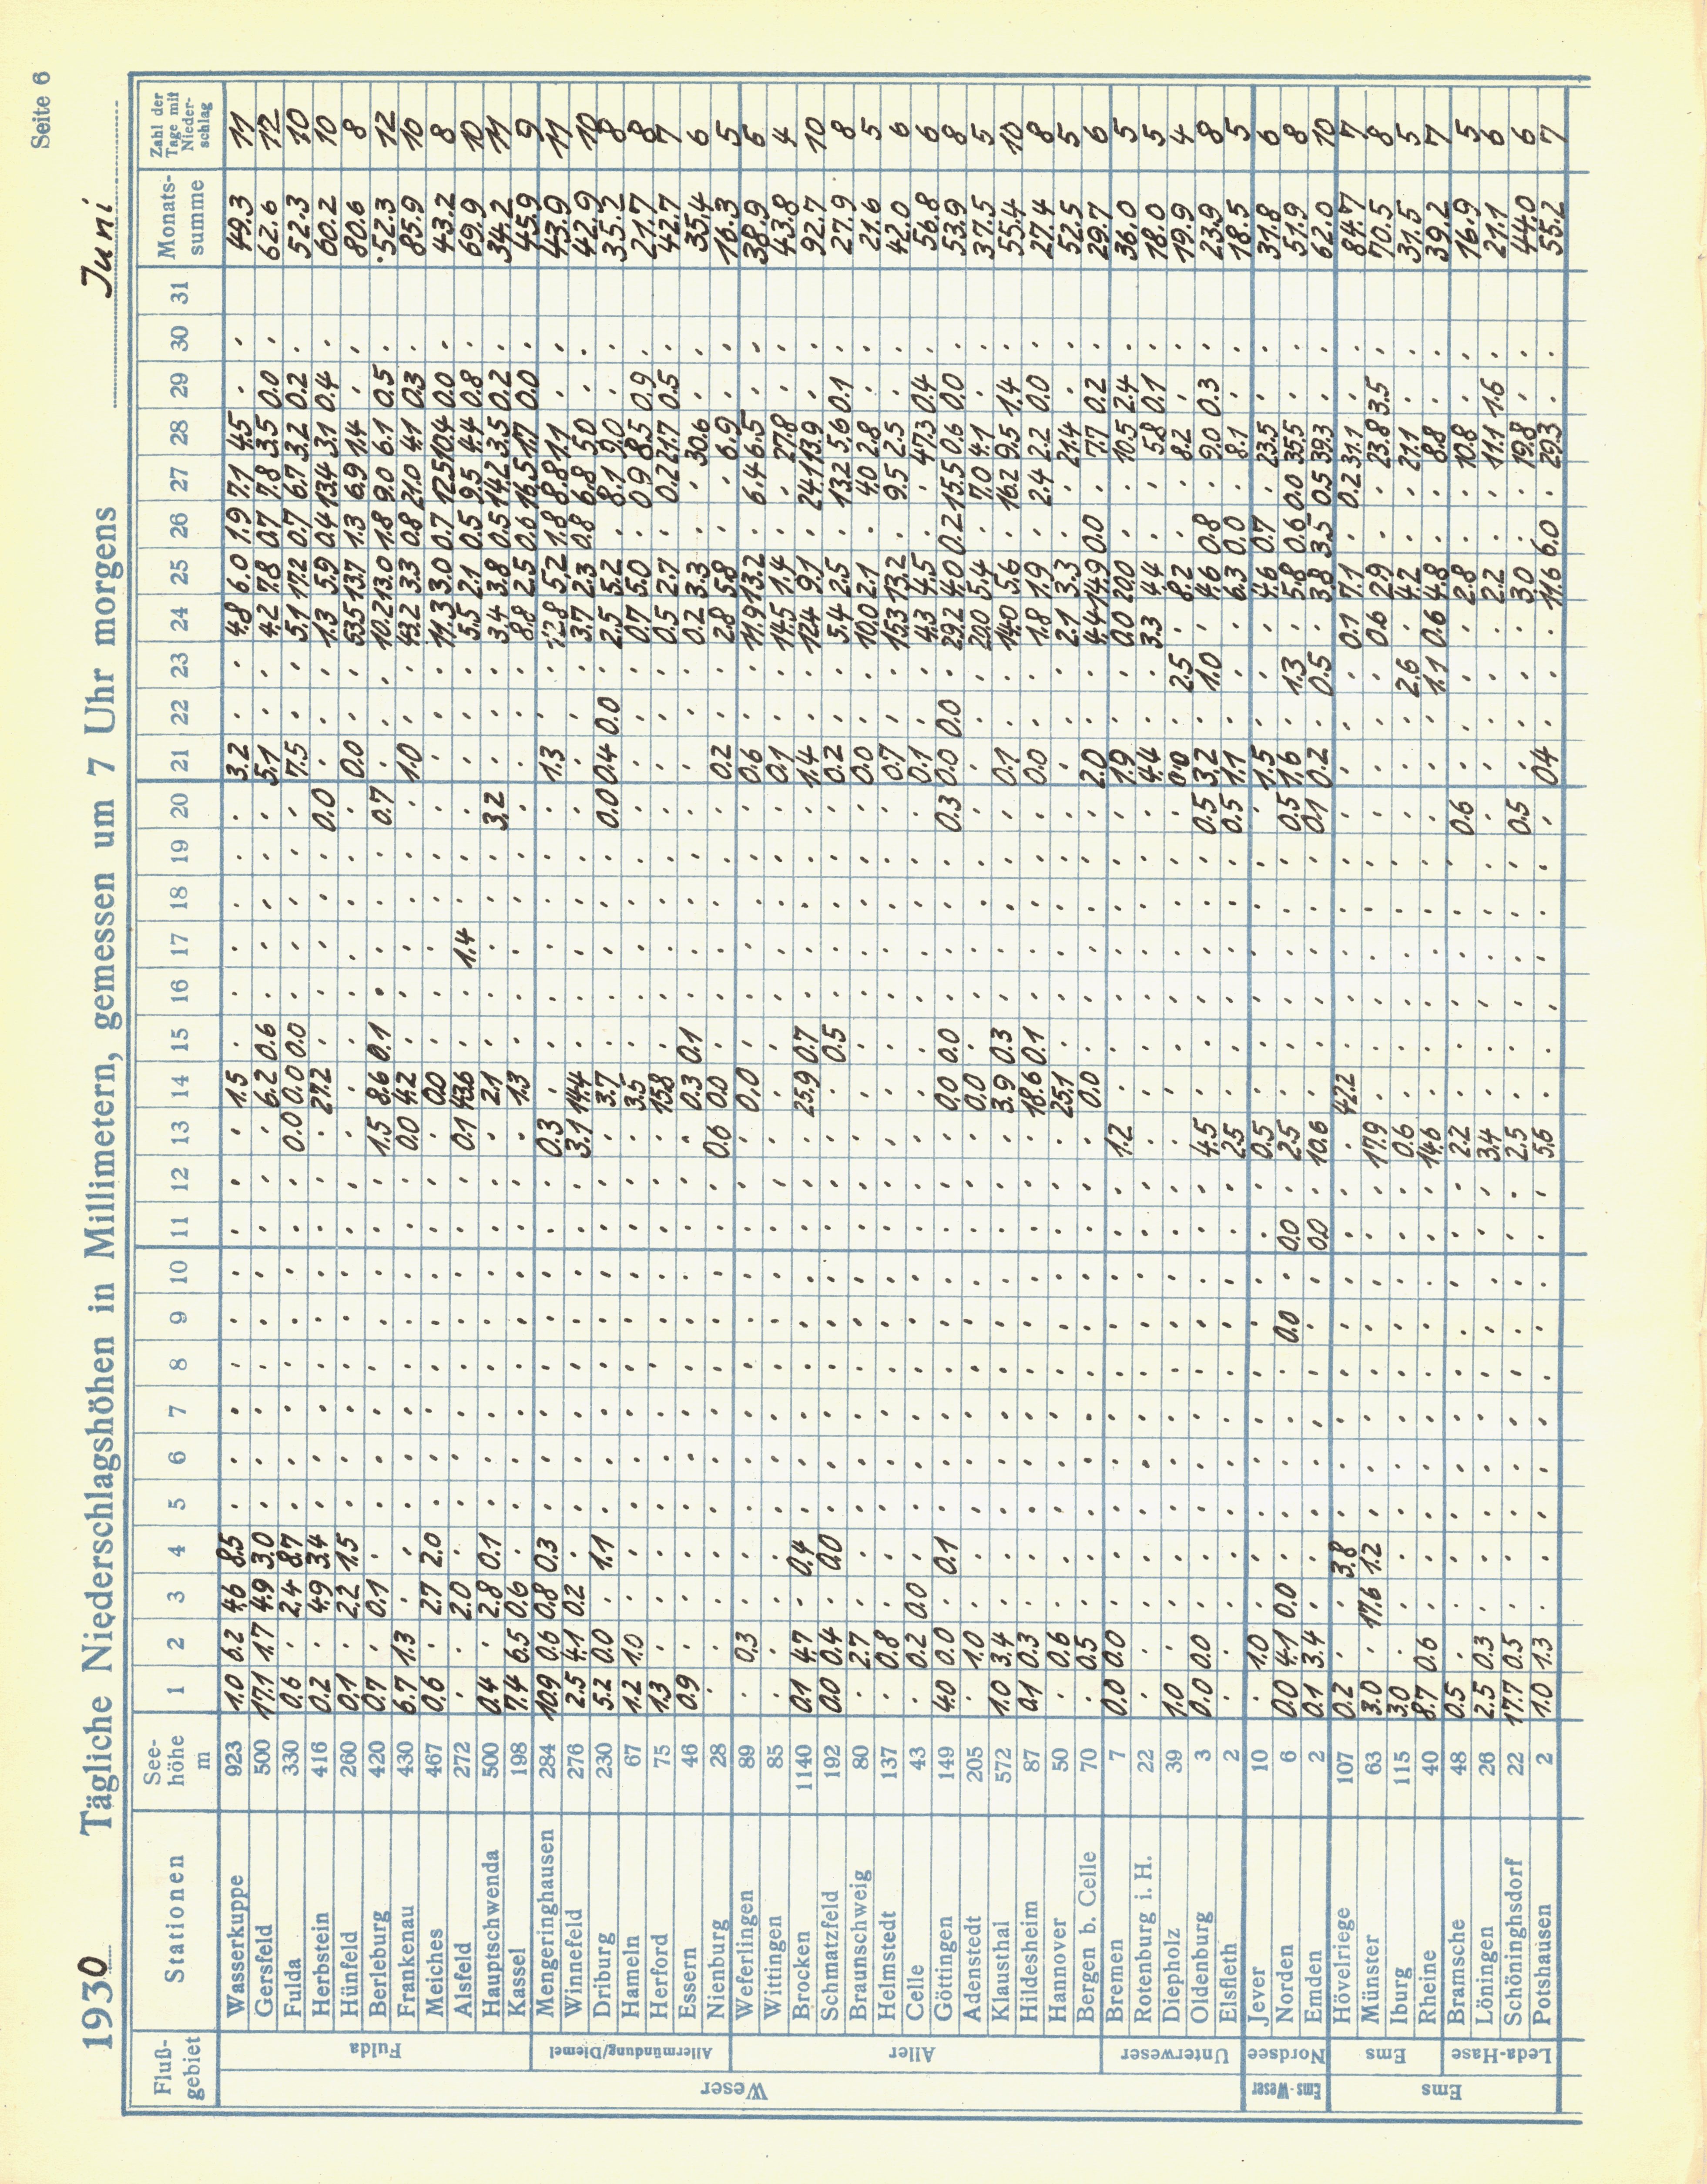 Seite 6
1930 Tägliche Niederschlagshöhen in Millimetern, gemessen um 7 Uhr morgens Juni
Fluß-gebiet Stationen See-höhe m 1 2 3 4 5 6 7 8 9 10 11 12 13 14 15 16 17 18 19 20 21 22 23 24 25 26 27 28 29 30 31 Monats-summe Zahl der Tage mit Nieder-schlag
Weser
Fulda
Wasserkuppe 923 1.0 6.2 4.6 8.5 1.5 3.2 4.8 6.0 1.9 7.1 4.5 49.3 11
Gersfeld 500 17.1 1.7 4.9 3.0 6.2 0.6 5.1 4.2 7.8 0.7 7.8 3.5 0.0 62.6 12
Fulda 330 0.6 2.4 8.7 0.0 0.0 0.0 7.5 5.1 17.2 0.7 6.7 3.2 0.2 52.3 10
Herbstein 416 0.2 4.9 3.4 27.2 0.0 1.3 5.9 0.4 13.4 3.1 0.4 60.2 10
Hünfeld 260 0.1 2.2 1.5 0.0 53.5 13.7 1.3 6.9 1.4 80.6 8
Berleburg 420 0.7 0.1 1.5 8.6 0.1 0.7 10.2 13.0 1.8 9.0 6.1 0.5 52.3 12
Frankenau 430 6.7 1.3 0.0 4.2 1.0 43.2 3.3 0.8 21.0 4.1 0.3 85.9 10
Meiches 467 0.6 2.7 2.0 0.0 11.3 3.0 0.7 12.5 10.4 0.0 43.2 8
Alsfeld 272 2.0 0.1 43.6 1.4 5.5 2.1 0.5 9.5 4.4 0.8 69.9 10
Hauptschwenda 500 0.4 2.8 0.1 2.1 3.2 3.4 3.8 0.5 14.2 3.5 0.2 34.2 11
Kassel 198 7.4 6.5 0.6 1.3 8.8 2.5 0.6 16.5 1.7 0.0 45.9 9
Allermündung/Diemel
Mengeringhausen 284 10.9 0.6 0.8 0.3 0.3 1.3 12.8 5.2 1.8 8.8 1.1 43.9 11
Winnefeld 276 2.5 4.1 0.2 3.1 14.4 3.7 2.3 0.8 6.8 5.0 42.9 10
Driburg 230 5.2 0.0 1.1 3.7 0.0 0.4 0.0 2.5 5.2 8.1 9.0 35.2 8
Hameln 67 1.2 1.0 3.5 0.7 5.0 0.9 8.5 0.9 21.7 8
Herford 75 1.3 15.8 0.5 2.7 0.2 21.7 0.5 42.7 7
Essern 46 0.9 0.3 0.1 0.2 3.3 30.6 35.4 6
Nienburg 28 0.6 0.0 0.2 2.8 5.8 6.9 16.3 5
Aller
Weferlingen 89 0.3 0.0 0.6 11.9 13.2 6.4 6.5 38.9 6
Wittingen 85 0.1 14.5 1.4 27.8 43.8 4
Brocken 1140 0.1 4.7 0.4 25.9 0.7 1.4 12.4 9.1 24.1 13.9 92.7 10
Schmatzfeld 192 0.0 0.4 0.0 0.5 0.2 5.4 2.5 13.2 5.6 0.1 27.9 8
Braunschweig 80 2.7 0.0 10.0 2.1 4.0 2.8 21.6 5
Helmstedt 137 0.8 0.7 15.3 13.2 9.5 2.5 42.0 6
Celle 43 0.2 0.0 0.1 4.3 4.5 47.3 0.4 56.8 6
Göttingen 149 4.0 0.0 0.1 0.0 0.0 0.3 0.0 0.0 29.2 4.0 0.2 15.5 0.6 0.0 53.9 8
Adenstedt 205 1.0 0.0 20.0 5.4 7.0 4.1 37.5 5
Klausthal 572 1.0 3.4 3.9 0.3 0.1 14.0 5.6 16.2 9.5 1.4 55.4 10
Hildesheim 87 0.1 0.3 18.6 0.1 0.0 1.8 1.9 2.4 2.2 0.0 27.4 8
Hannover 50 0.6 25.1 2.1 3.3 21.4 52.5 5
Bergen b. Celle 70 0.5 0.0 2.0 4.4 14.9 0.0 7.7 0.2 29.7 6
Unterweser
Bremen 7 0.0 0.0 1.2 1.9 0.0 20.0 10.5 2.4 36.0 5
Rotenburg i. H. 22 4.4 3.3 4.4 5.8 0.1 18.0 5
Diepholz 39 1.0 0.0 2.5 8.2 8.2 19.9 4
Oldenburg 3 0.0 0.0 4.5 0.5 3.2 1.0 4.6 0.8 9.0 0.3 23.9 8
Elsfleth 2 2.5 0.5 1.1 6.3 0.0 8.1 18.5 5
Ems-Weser
Nordsee
Jever 10 1.0 0.5 1.5 4.6 0.7 23.5 31.8 6
Norden 6 0.0 4.1 0.0 0.0 0.0 2.5 0.5 1.6 1.3 5.8 0.6 0.0 35.5 51.9 8
Emden 2 0.1 3.4 0.0 10.6 0.1 0.2 0.5 3.8 3.5 0.5 39.3 62.0 10
Ems
Ems
Hövelriege 107 0.2 3.8 42.2 0.1 7.1 0.2 31.1 84.7 7
Münster 63 3.0 17.6 1.2 17.9 0.6 2.9 23.8 3.5 70.5 8
Iburg 115 3.0 0.6 2.6 4.2 21.1 31.5 5
Rheine 40 8.7 0.6 14.6 1.1 0.6 4.8 8.8 39.2 7
Leda-Hase
Bramsche 48 0.5 2.2 0.6 2.8 10.8 16.9 5
Löningen 26 2.5 0.3 3.4 2.2 11.1 1.6 21.1 6
Schöninghsdorf 22 17.7 0.5 2.5 0.5 3.0 19.8 44.0 6
Potshausen 2 1.0 1.3 5.6 0.4 11.6 6.0 29.3 55.2 7